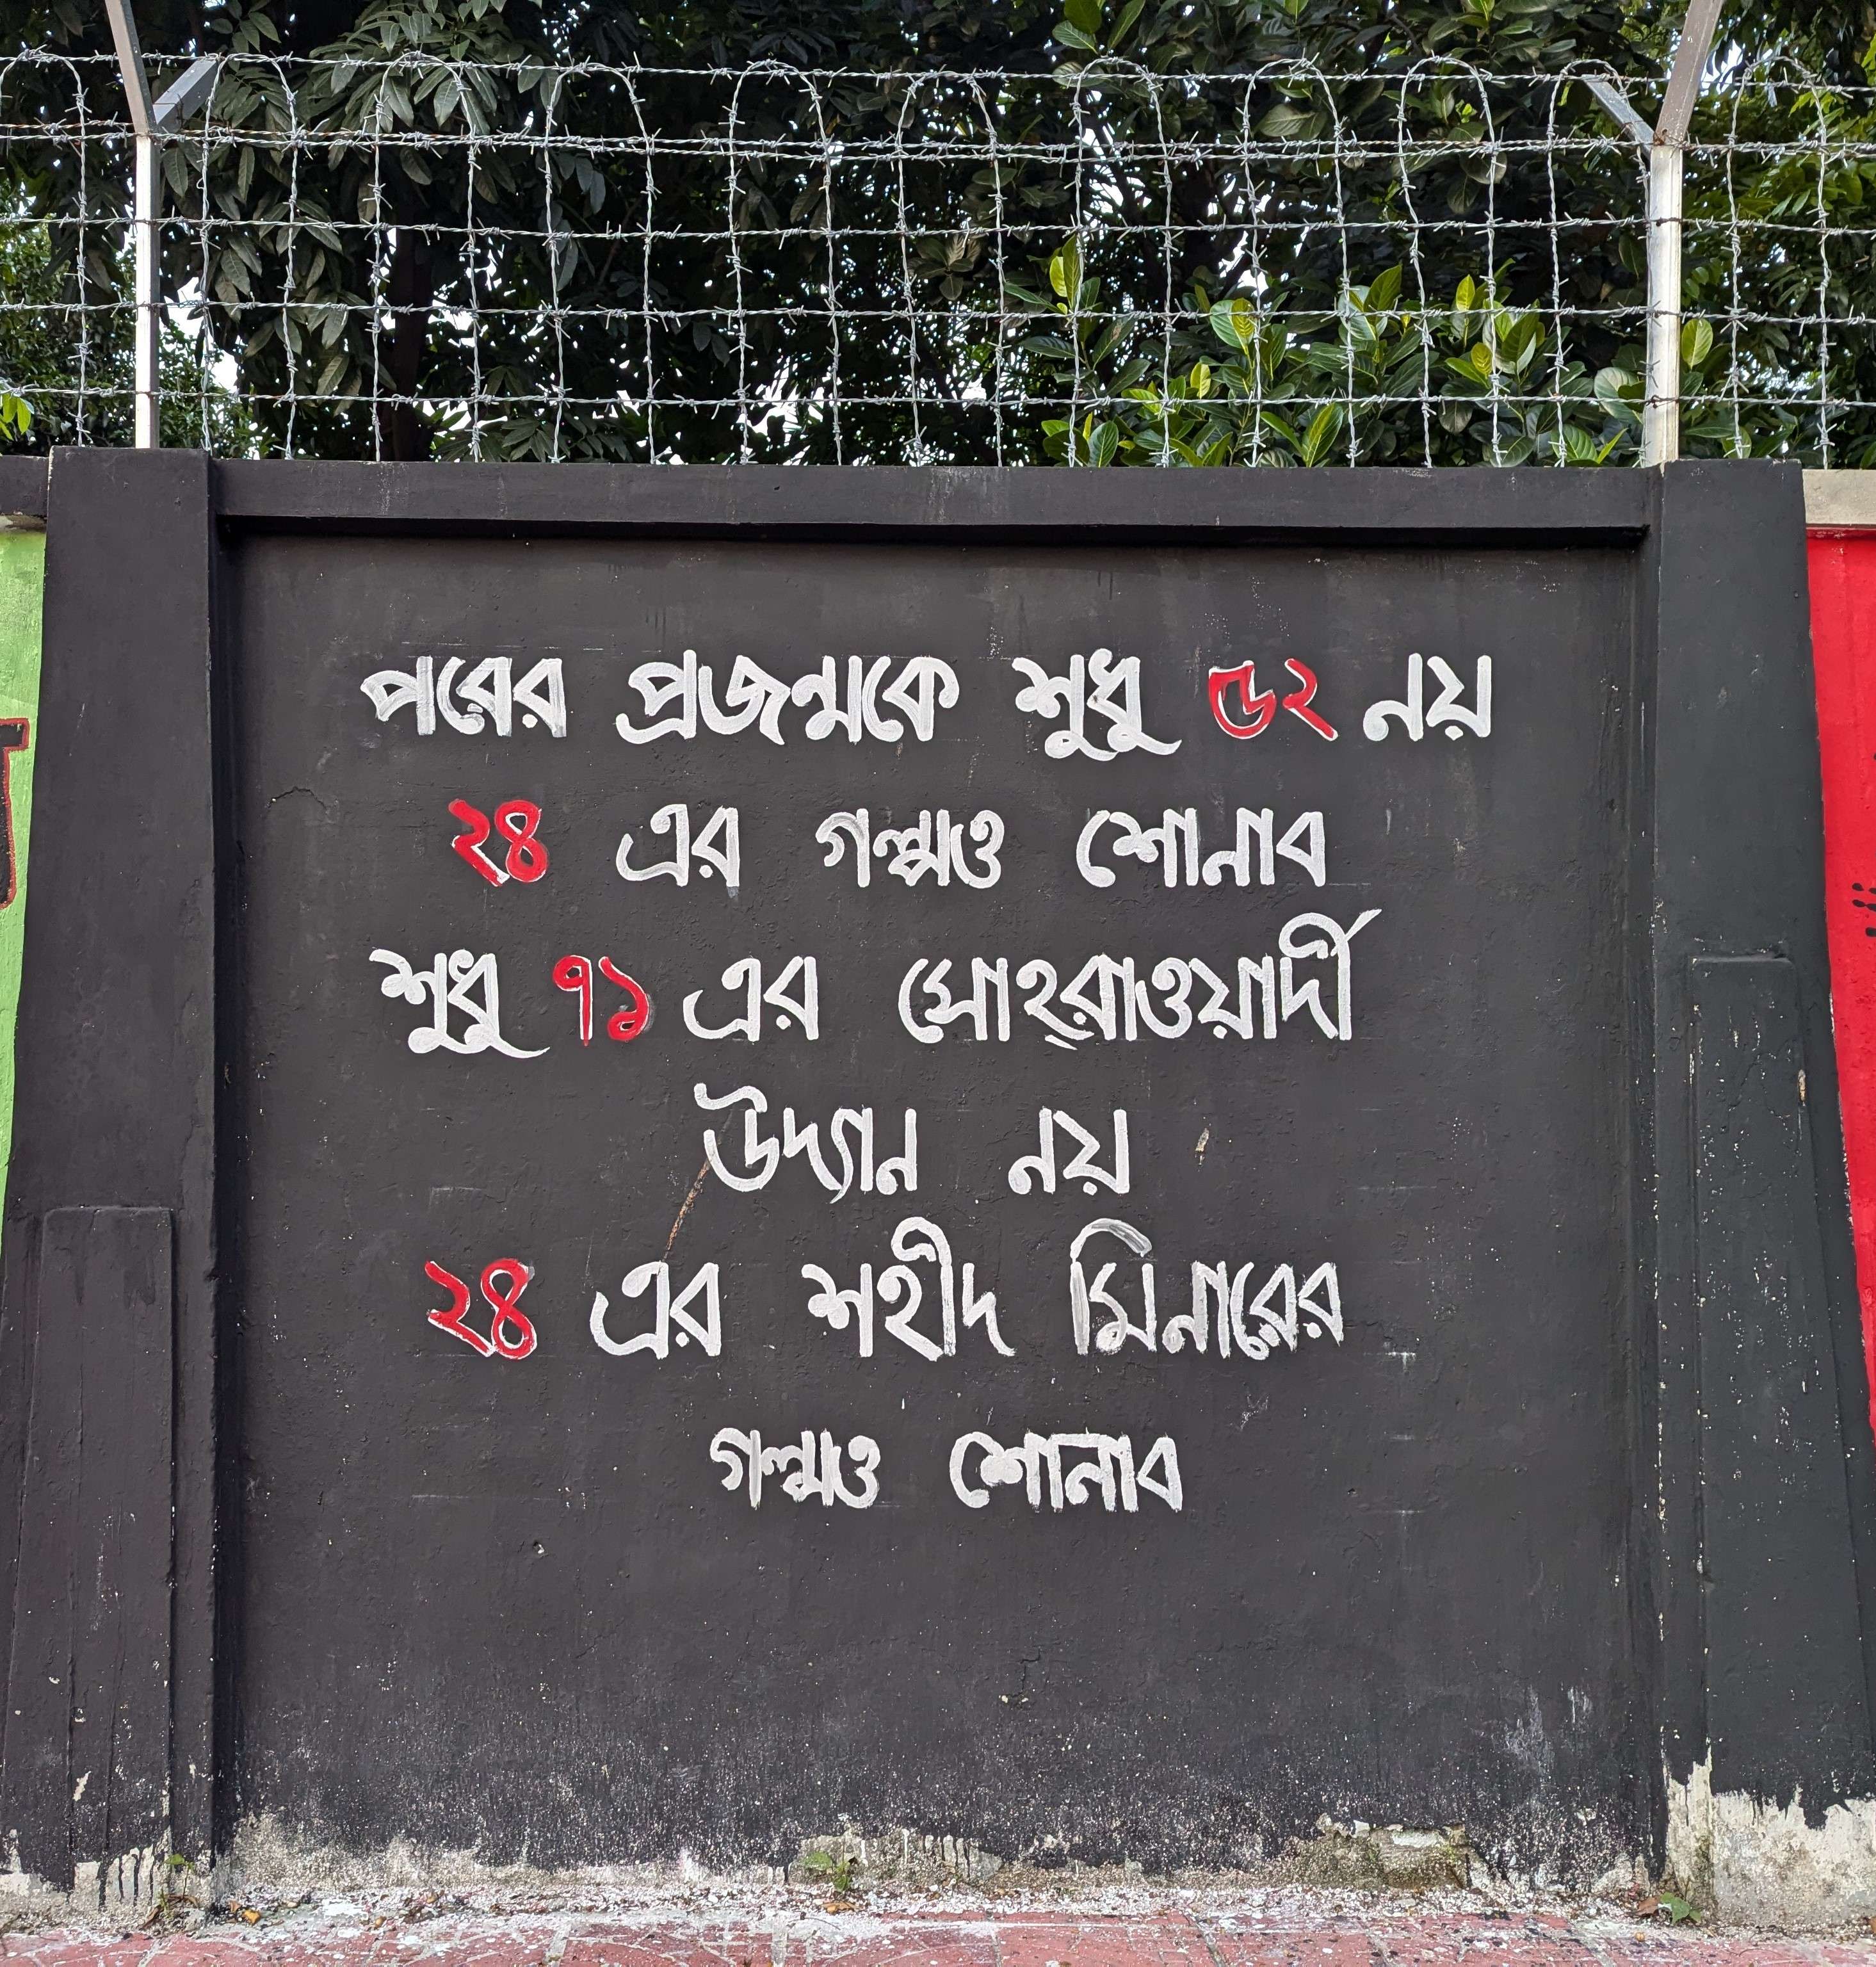 পরের প্রজন্মকে শুধু ৫২ নয়
২৪ এর গল্পও শোনাব
শুধু ৭১ এর সোহ্‌রাওয়ার্দী
উদ্যান নয়
২৪ এর শহীদ মিনারের
গল্পও শোনাব